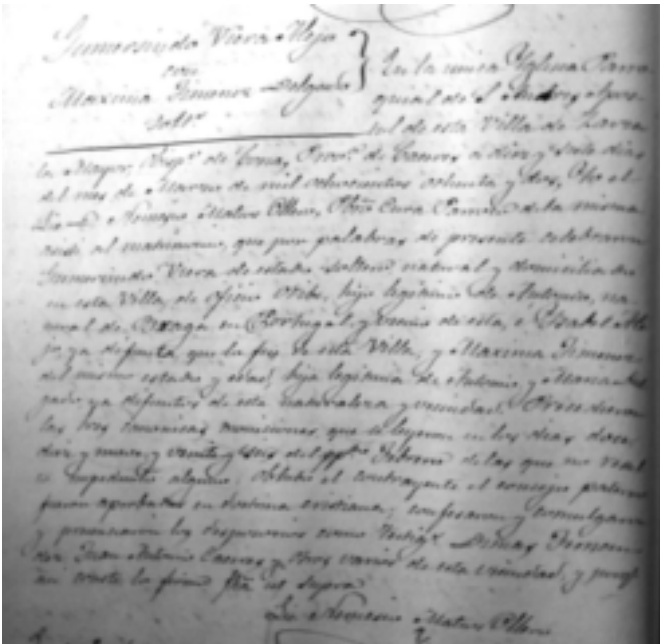 Gumersindo Viera Alejo
con
Maxima Jimenez Delgado
Solt.s
En la unica Yglesia Parro
quial de S. Andres Apos
tol de esta Villa de Zarza
la Mayor, Obisp.o de Coria, Prov.a de Caceres a diez y siete dias
del mes de Marzo de mil ochocientos ochenta y dos, Yo el
Nemesio Mateos Cura Parroco de la misma
asisti al matrimonio, que por palabras de presente celebraron
Gumersindo Viera de estado soltero, natural y domiciliado
en esta Villa, de oficio hijo legitimo de Antonio, na
tural de en Portugal, y vecino de esta, e Ysabel Ale
jo, ya difunta, que lo fue de esta Villa, y Maxima Jimenez
del mismo estado y hija legitima de Antonio, y Maria Del
gado ya difuntos de esta naturaleza y vecindad. Precedieron
las tres canonicas moniciones, que se leyeron en los dias doce,
diez y nueve, y veinte y seis del Febrero de las que no resul
to impedimento alguno; obtubo el contrayente el consejo paterno
fueron aprobados en doctrina cristiana; confesaron y comulgaron
y presenciaron los desposorios como testig.s Jimenez
Juan Antonio y otros varios de esta vecindad, y para
que conste lo firmo fha ut supra
Nemesio Mateos